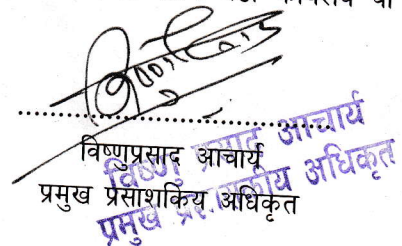 विष्णुप्रसाद आचार्य
प्रमुख प्रसाशकिय अधिकृत
विष्णु प्रसाद आचार्य
प्रमुख प्रशासकीय अधिकृत